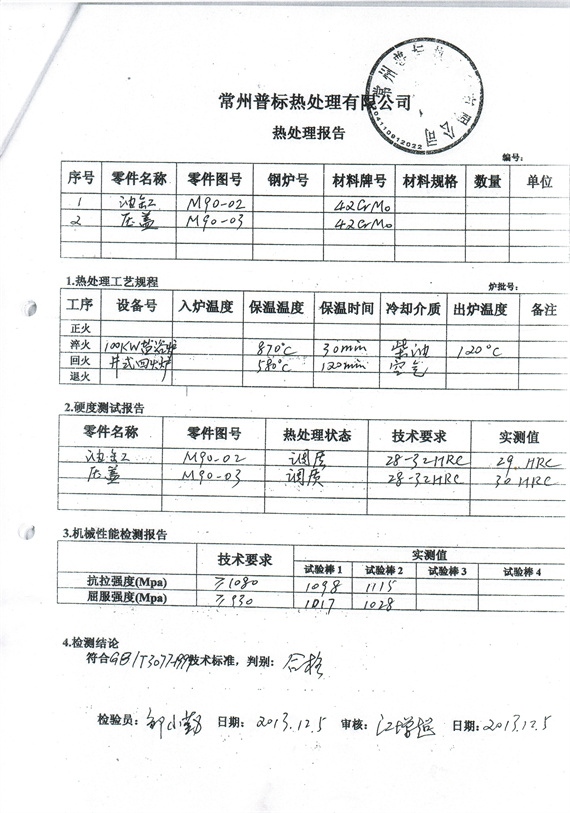 常州普标热处理有限公司
热处理报告
3204110912022
编号：
序号 零件名称 零件图号 钢炉号 材料牌号 材料规格 数量 单位
1 油缸 M90-02 42CrMo
2 压盖 M90-03 42CrMo
1.热处理工艺规程 炉批号：
工序 设备号 入炉温度 保温温度 保温时间 冷却介质 出炉温度 备注
正火
淬火 100KW盐浴炉 870℃ 30min 柴油 120℃
回火 井式回火炉 580℃ 120min 空气
退火
2.硬度测试报告
零件名称 零件图号 热处理状态 技术要求 实测值
油缸 M90-02 调质 28-32HRC 29 HRC
压盖 M90-03 调质 28-32HRC 30 HRC
3.机械性能检测报告
技术要求 实测值
试验棒 1 试验棒 2 试验棒 3 试验棒 4
抗拉强度(Mpa) ≥1080 1098 1115
屈服强度(Mpa) ≥930 1017 1028
4.检测结论
符合GB/T3077-1999技术标准，判别：合格
检验员： 日期：2013.12.5 审核：江增 日期：2013.12.5